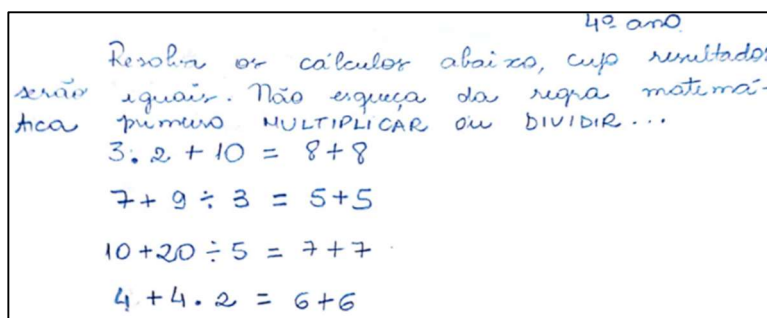 4º ano
Resolva os cálculos abaixo, cujo resultados
serão iguais. Não esqueça da regra matemá-
tica primeiro MULTIPLICAR ou DIVIDIR...
3. 2 + 10 = 8 + 8
7 + 9 ÷ 3 = 5 + 5
10 + 20 ÷ 5 = 7 + 7
4 + 4 . 2 = 6 + 6